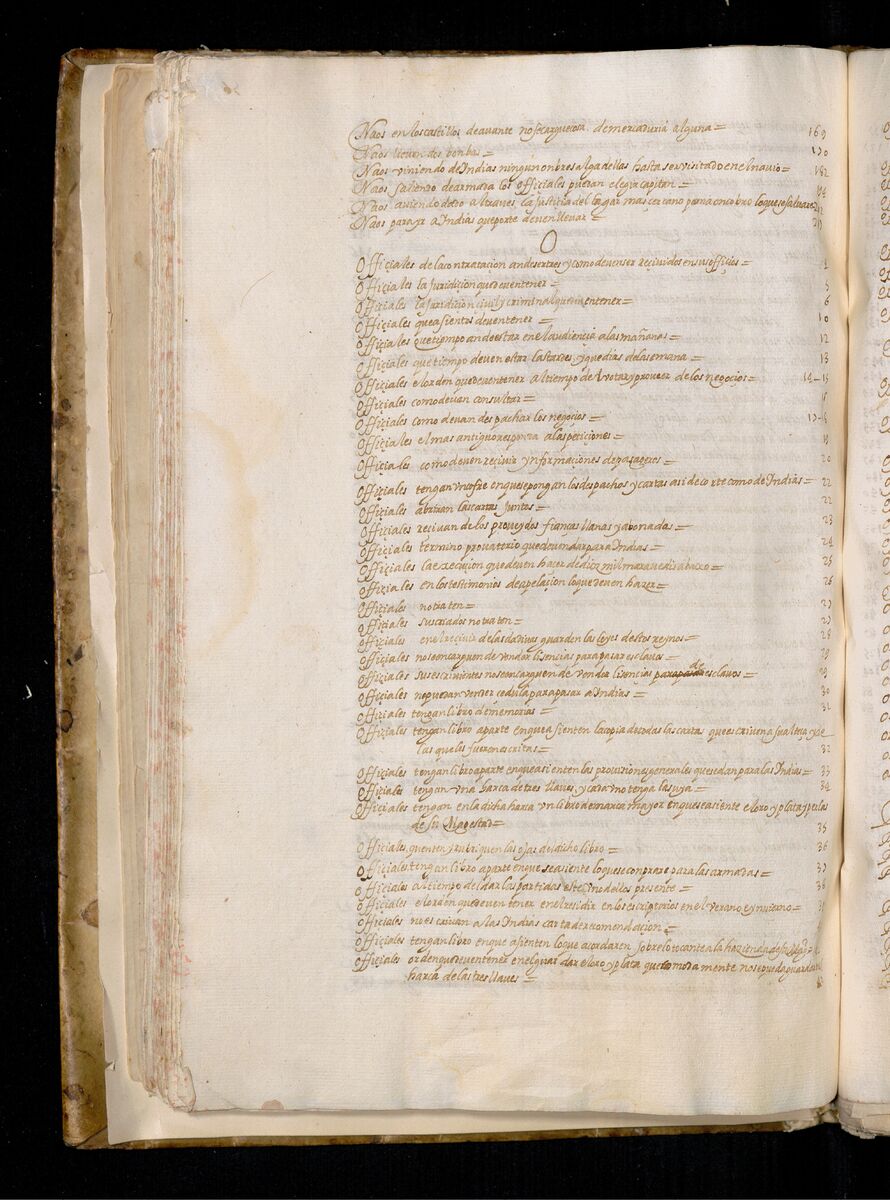 Naos en los castillos de avante no se cargue cosa de mercaduria alguna = 169
Naos lleven dos bonbas = 170
Naos viniendo de Indias ningun onbre salga dellas hasta ser visitado en el navio = 182
Naos saliendo de armada los officiales puedan elegir capitan =
Naos aviendo dado al traves la justicia del lugar mas cercano ponga en cobro lo que se salvare
Naos para yr a Indias que porte deven llevar =
O
Officiales de la contratacion an de ser tres y como deven ser reçividos en sus officios =
Officiales la juridicion que deven tener = 5
Officiales la juridicion civil y criminal que deven tener = 6
Officiales que asientos deven tener = 10
Officiales que tiempo an de estar en el audiencia a las mañanas = 12
Officiales que tiempo deven estar las tardes, y que dias de la semana = 13
Officiales el orden que deven tener al tiempo de votar y proveer de los negocios = 14-15
Officiales como devan consultar =
Officiales como devan despachar los negocios =
Officiales el mas antiguo responda a las peticiones =
Officiales como deven reçivir ynformaciones de pasageros = 20
Officiales tengan un cofre en que se pongan los despachos y cartas asi de corte como de Indias = 22
Officiales abriran las cartas juntos = 22
Officiales reçivan de los proveydos fianças llanas y abonadas = 23
Officiales termino provatorio que devan dar para Indias = 24
Officiales la execuion que deven hacer de diez mil maravedis abaxo = 25
Officiales en los testimonios de apelacion lo que deven hazer = 26
Officiales no traten = 27
Officiales sus criados no traten = 27
Officiales en el reçivir de las dadivas guarden las leyes destos reynos = 28
Officiales no se encarguen de vender liçencias para pasar esclavos = 29
Officiales sus escrivientes no se encarguen de vender liçencias de esclavos = 29
Officiales no puedan vender cedula para pasar a Indias = 30
Officiales tengan libro de memorias = 31
Officiales tengan libro aparte en que asienten la copia de todas las cartas que escriven a su alteça y de
las que les fueron escritas = 32
Officiales tengan libro aparte en que asienten las provisiones generales que se dan para las Indias = 33
Officiales tengan una harca de tres llaves, y cada uno tenga la suya = 34
Officiales tengan en la dicha harca un libro de marca mayor en que se asiente el oro y plata y perlas
de su Magestad = 35
Officiales quenten y rubriquen las ojas del dicho libro = 36
Officiales tengan libro aparte en que se asiente lo que se conprare para las armadas = 37
Officiales al tiempo del dar las partidas este uno dellos presente = 38
Officiales el orden que deven tener en el residir en los escriptorios en el verano e ynvierno =
Officiales no escrivan a las Indias carta de recomendacion =
Officiales tengan libro en que asienten lo que acordaren sobre lo tocante a la hazienda de su Magd =
Officiales orden que deven tener en el guardar el oro y plata que comodamente no se pueda guardar en el
harca de las tres llaves =